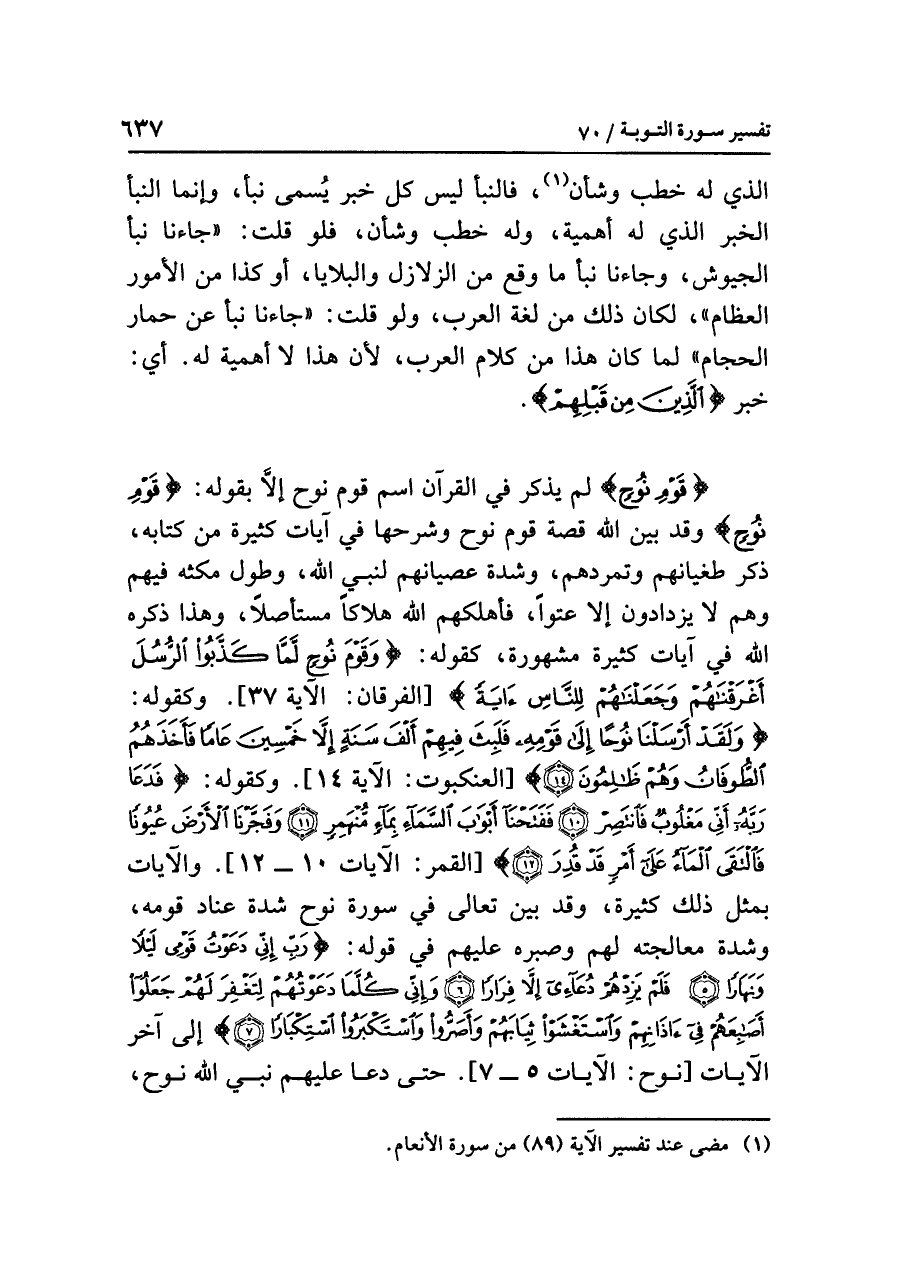 تفسير سورة التوبة / ٧٠ ٦٣٧
الذي له خطب وشأن(١)، فالنبأ ليس كل خبر يُسمى نبأ، وإنما النبأ
الخبر الذي له أهمية، وله خطب وشأن، فلو قلت: «جاءنا نبأ
الجيوش، وجاءنا نبأ ما وقع من الزلازل والبلايا، أو كذا من الأمور
العظام»، لكان ذلك من لغة العرب، ولو قلت: «جاءنا نبأ عن حمار
الحجام» لما كان هذا من كلام العرب، لأن هذا لا أهمية له. أي:
خبر ﴿ٱلَّذِينَ مِن قَبْلِهِمْ﴾.
﴿قَوْمِ نُوحٍ﴾ لم يذكر في القرآن اسم قوم نوح إلاَّ بقوله: ﴿قَوْمِ
نُوحٍ﴾ وقد بين الله قصة قوم نوح وشرحها في آيات كثيرة من كتابه،
ذكر طغيانهم وتمردهم، وشدة عصيانهم لنبي الله، وطول مكثه فيهم
وهم لا يزدادون إلا عتواً، فأهلكهم الله هلاكاً مستأصلاً، وهذا ذكره
الله في آيات كثيرة مشهورة، كقوله: ﴿وَقَوْمَ نُوحٍ لَّمَّا كَذَّبُوا۟ ٱلرُّسُلَ
أَغْرَقْنَٰهُمْ وَجَعَلْنَٰهُمْ لِلنَّاسِ ءَايَةً﴾ [الفرقان: الآية ٣٧]. وكقوله:
﴿وَلَقَدْ أَرْسَلْنَا نُوحًا إِلَىٰ قَوْمِهِۦ فَلَبِثَ فِيهِمْ أَلْفَ سَنَةٍ إِلَّا خَمْسِينَ عَامًا فَأَخَذَهُمُ
ٱلطُّوفَانُ وَهُمْ ظَٰلِمُونَ ١٤﴾ [العنكبوت: الآية ١٤]. وكقوله: ﴿فَدَعَا
رَبَّهُۥٓ أَنِّى مَغْلُوبٌ فَٱنتَصِرْ ١٠ فَفَتَحْنَآ أَبْوَٰبَ ٱلسَّمَآءِ بِمَآءٍ مُّنْهَمِرٍ ١١ وَفَجَّرْنَا ٱلْأَرْضَ عُيُونًا
فَٱلْتَقَى ٱلْمَآءُ عَلَىٰٓ أَمْرٍ قَدْ قُدِرَ ١٢﴾ [القمر: الآيات ١٠ ــ ١٢]. والآيات
بمثل ذلك كثيرة، وقد بين تعالى في سورة نوح شدة عناد قومه،
وشدة معالجته لهم وصبره عليهم في قوله: ﴿رَبِّ إِنِّى دَعَوْتُ قَوْمِى لَيْلًا
وَنَهَارًا ٥ فَلَمْ يَزِدْهُمْ دُعَآءِىٓ إِلَّا فِرَارًا ٦ وَإِنِّى كُلَّمَا دَعَوْتُهُمْ لِتَغْفِرَ لَهُمْ جَعَلُوٓا۟
أَصَٰبِعَهُمْ فِىٓ ءَاذَانِهِمْ وَٱسْتَغْشَوْا۟ ثِيَابَهُمْ وَأَصَرُّوا۟ وَٱسْتَكْبَرُوا۟ ٱسْتِكْبَارًا ٧﴾ إلى آخر
الآيات [نوح: الآيات ٥ ــ ٧]. حتى دعا عليهم نبي الله نوح،
(١) مضى عند تفسير الآية (٨٩) من سورة الأنعام.